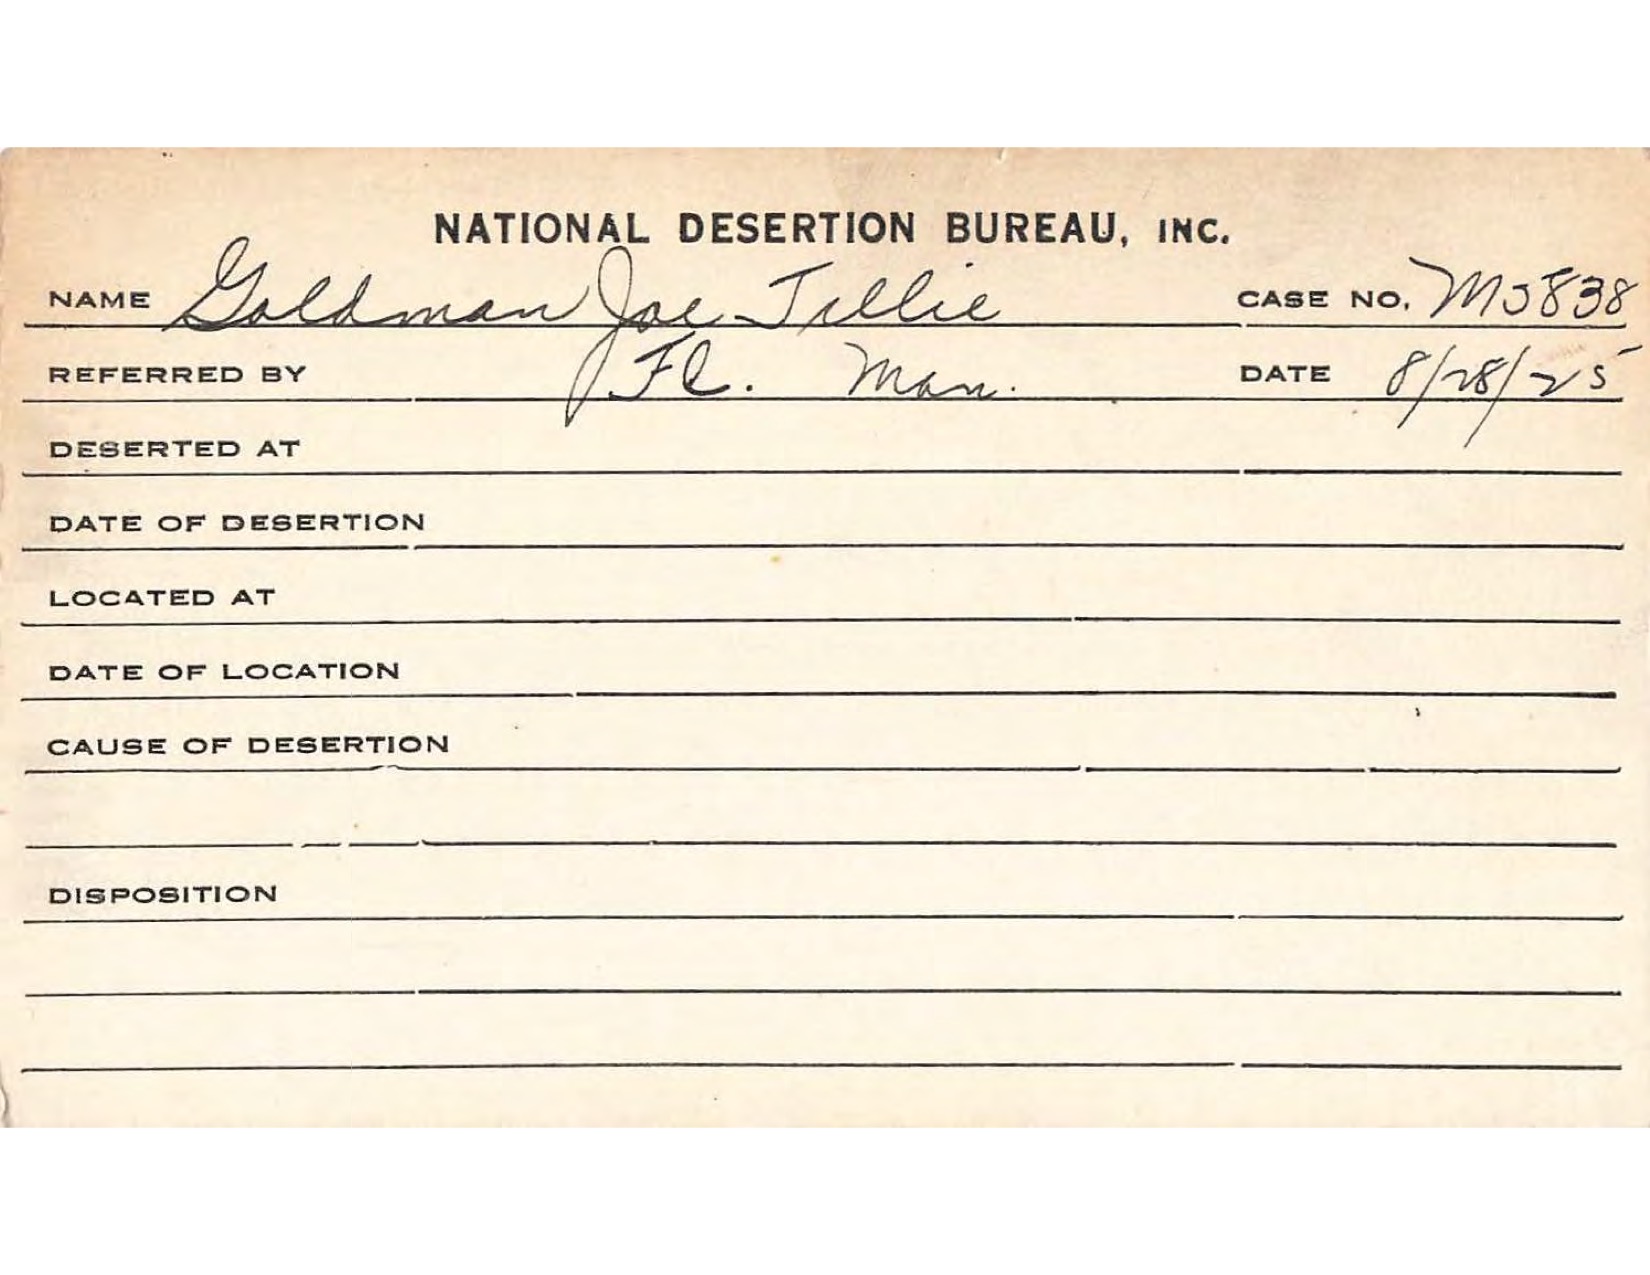 NATIONAL DESERTION BUREAU, INC.
NAME Goldman Joe Tillie CASE NO. M5838
REFERRED BY FC. Man. DATE 8/28/25
DESERTED AT
DATE OF DESERTION
LOCATED AT
DATE OF LOCATION
CAUSE OF DESERTION
DISPOSITION